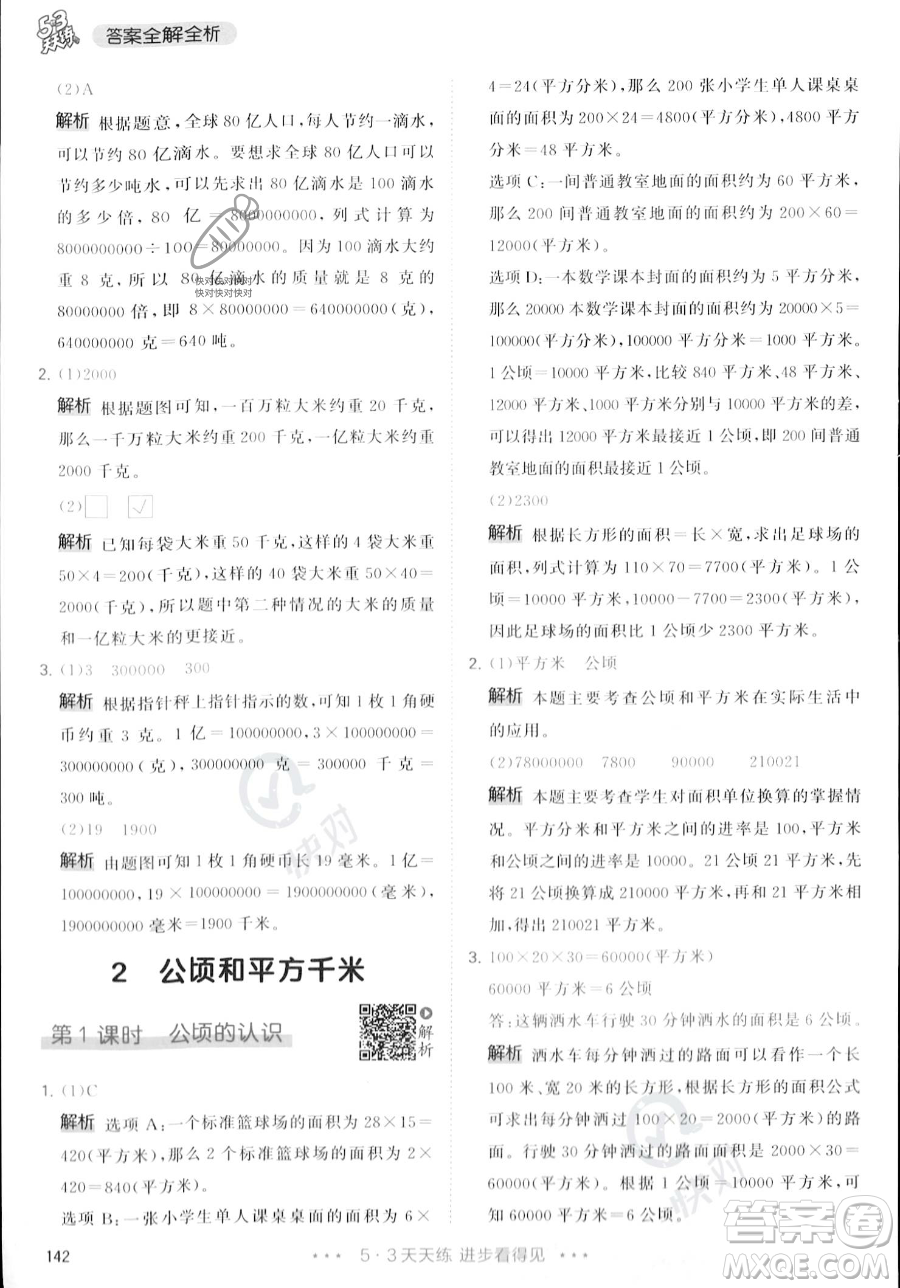 53天天练 答案全解全析
(2)A
解析 根据题意，全球 80 亿人口，每人节约一滴水，
可以节约 80 亿滴水。要想求出 80 亿滴水可以
节约多少吨水，可以先求出 80 亿滴水是 100 滴水
的多少倍，80 亿＝8000000000，列式计算为
8000000000÷100＝80000000。因为 100 滴水大约
重 8 克，所以 80 亿滴水的质量就是 8 克的
80000000 倍，即 8×80000000＝640000000(克)，
640000000 克＝640 吨。
2. (1)2000
解析 根据题图可知，一百万粒大米约重 20 千克，
那么一千万粒大米约重 200 千克，一亿粒大米约重
2000 千克。
(2)□ ☑
解析 已知每袋大米重 50 千克，这样的 4 袋大米重
50×4＝200(千克)，这样的 40 袋大米重 50×40＝
2000(千克)，所以题中第二种情况的大米的质量
和一亿粒大米的更接近。
3. (1)3 300000000 300
解析 根据指针秤上指针指示的数，可知 1 枚 1 角硬
币约重 3 克。1 亿＝100000000，3×100000000＝
300000000(克)，300000000 克＝300000 千克＝
300 吨。
(2)19 1900
解析 由题图可知 1 角硬币长 19 毫米。1 亿＝
100000000，19×100000000＝1900000000(毫米)，
1900000000 毫米＝1900 千米。
2 公顷和平方千米
第 1 课时 公顷的认识
解析
1. (1)C
解析 选项 A：一个标准篮球场的面积为 28×15＝
420(平方米)，那么 2 个标准篮球场的面积为 2
×420＝840(平方米)。
选项 B：一张小学生单人课桌桌面的面积约为 6×
142
4＝24(平方分米)，那么 200 张小学生单人课桌桌
面的面积约为 200×24＝4800(平方分米)，4800 平
方分米＝48 平方米。
选项 C：一间普通教室地面的面积约为 60 平方米，
那么 200 间普通教室地面的面积约为 200×60＝
12000(平方米)。
选项 D：一本数学课本封面的面积约为 5 平方分米，
那么 20000 本数学课本封面的面积约为 20000×5＝
100000(平方分米)，100000 平方分米＝1000 平方米。
1 公顷＝10000 平方米，比较 840 平方米、48 平方米、
12000 平方米、1000 平方米分别与 10000 平方米的差，
可以得出 12000 平方米最接近 1 公顷，即 200 间普通
教室地面的面积最接近 1 公顷。
(2)2300
解析 根据长方形的面积＝长×宽，求出足球场的
面积，列式计算为 110×70＝7700(平方米)。1 公
顷＝10000 平方米，10000－7700＝2300(平方米)，
因此足球场的面积比 1 公顷少 2300 平方米。
2. (1)平方米 公顷
解析 本题主要考查公顷和平方米在实际生活中
的应用。
(2)78000000 7800 90000 210021
解析 本题主要考查学生对面积单位换算的掌握情
况。平方分米和平方米之间的进率是 100，平方米
和公顷之间的进率是 10000。21 公顷 21 平方米，
先将 21 公顷换算成 210000 平方米，再和 21 平方米
相加，得出 210021 平方米。
3. 100×20×30＝60000(平方米)
60000 平方米＝6 公顷
答：这辆洒水车行驶 30 分钟，能洒 6 公顷的路面。
解析 洒水车每分钟洒过的路面可以看作一个长 100
米、宽 20 米的长方形，根据长方形的面积公式
可以求出洒水车每分钟洒过 100×20＝2000(平方米)的路
面。行驶 30 分钟能洒过的路面面积为 2000×30＝
60000(平方米)，60000 平方米＝6 公顷。
5·3 天天练 进步看得见
快对快对快对
快对快对快对
快对
快对
答案圈
MXQE.COM